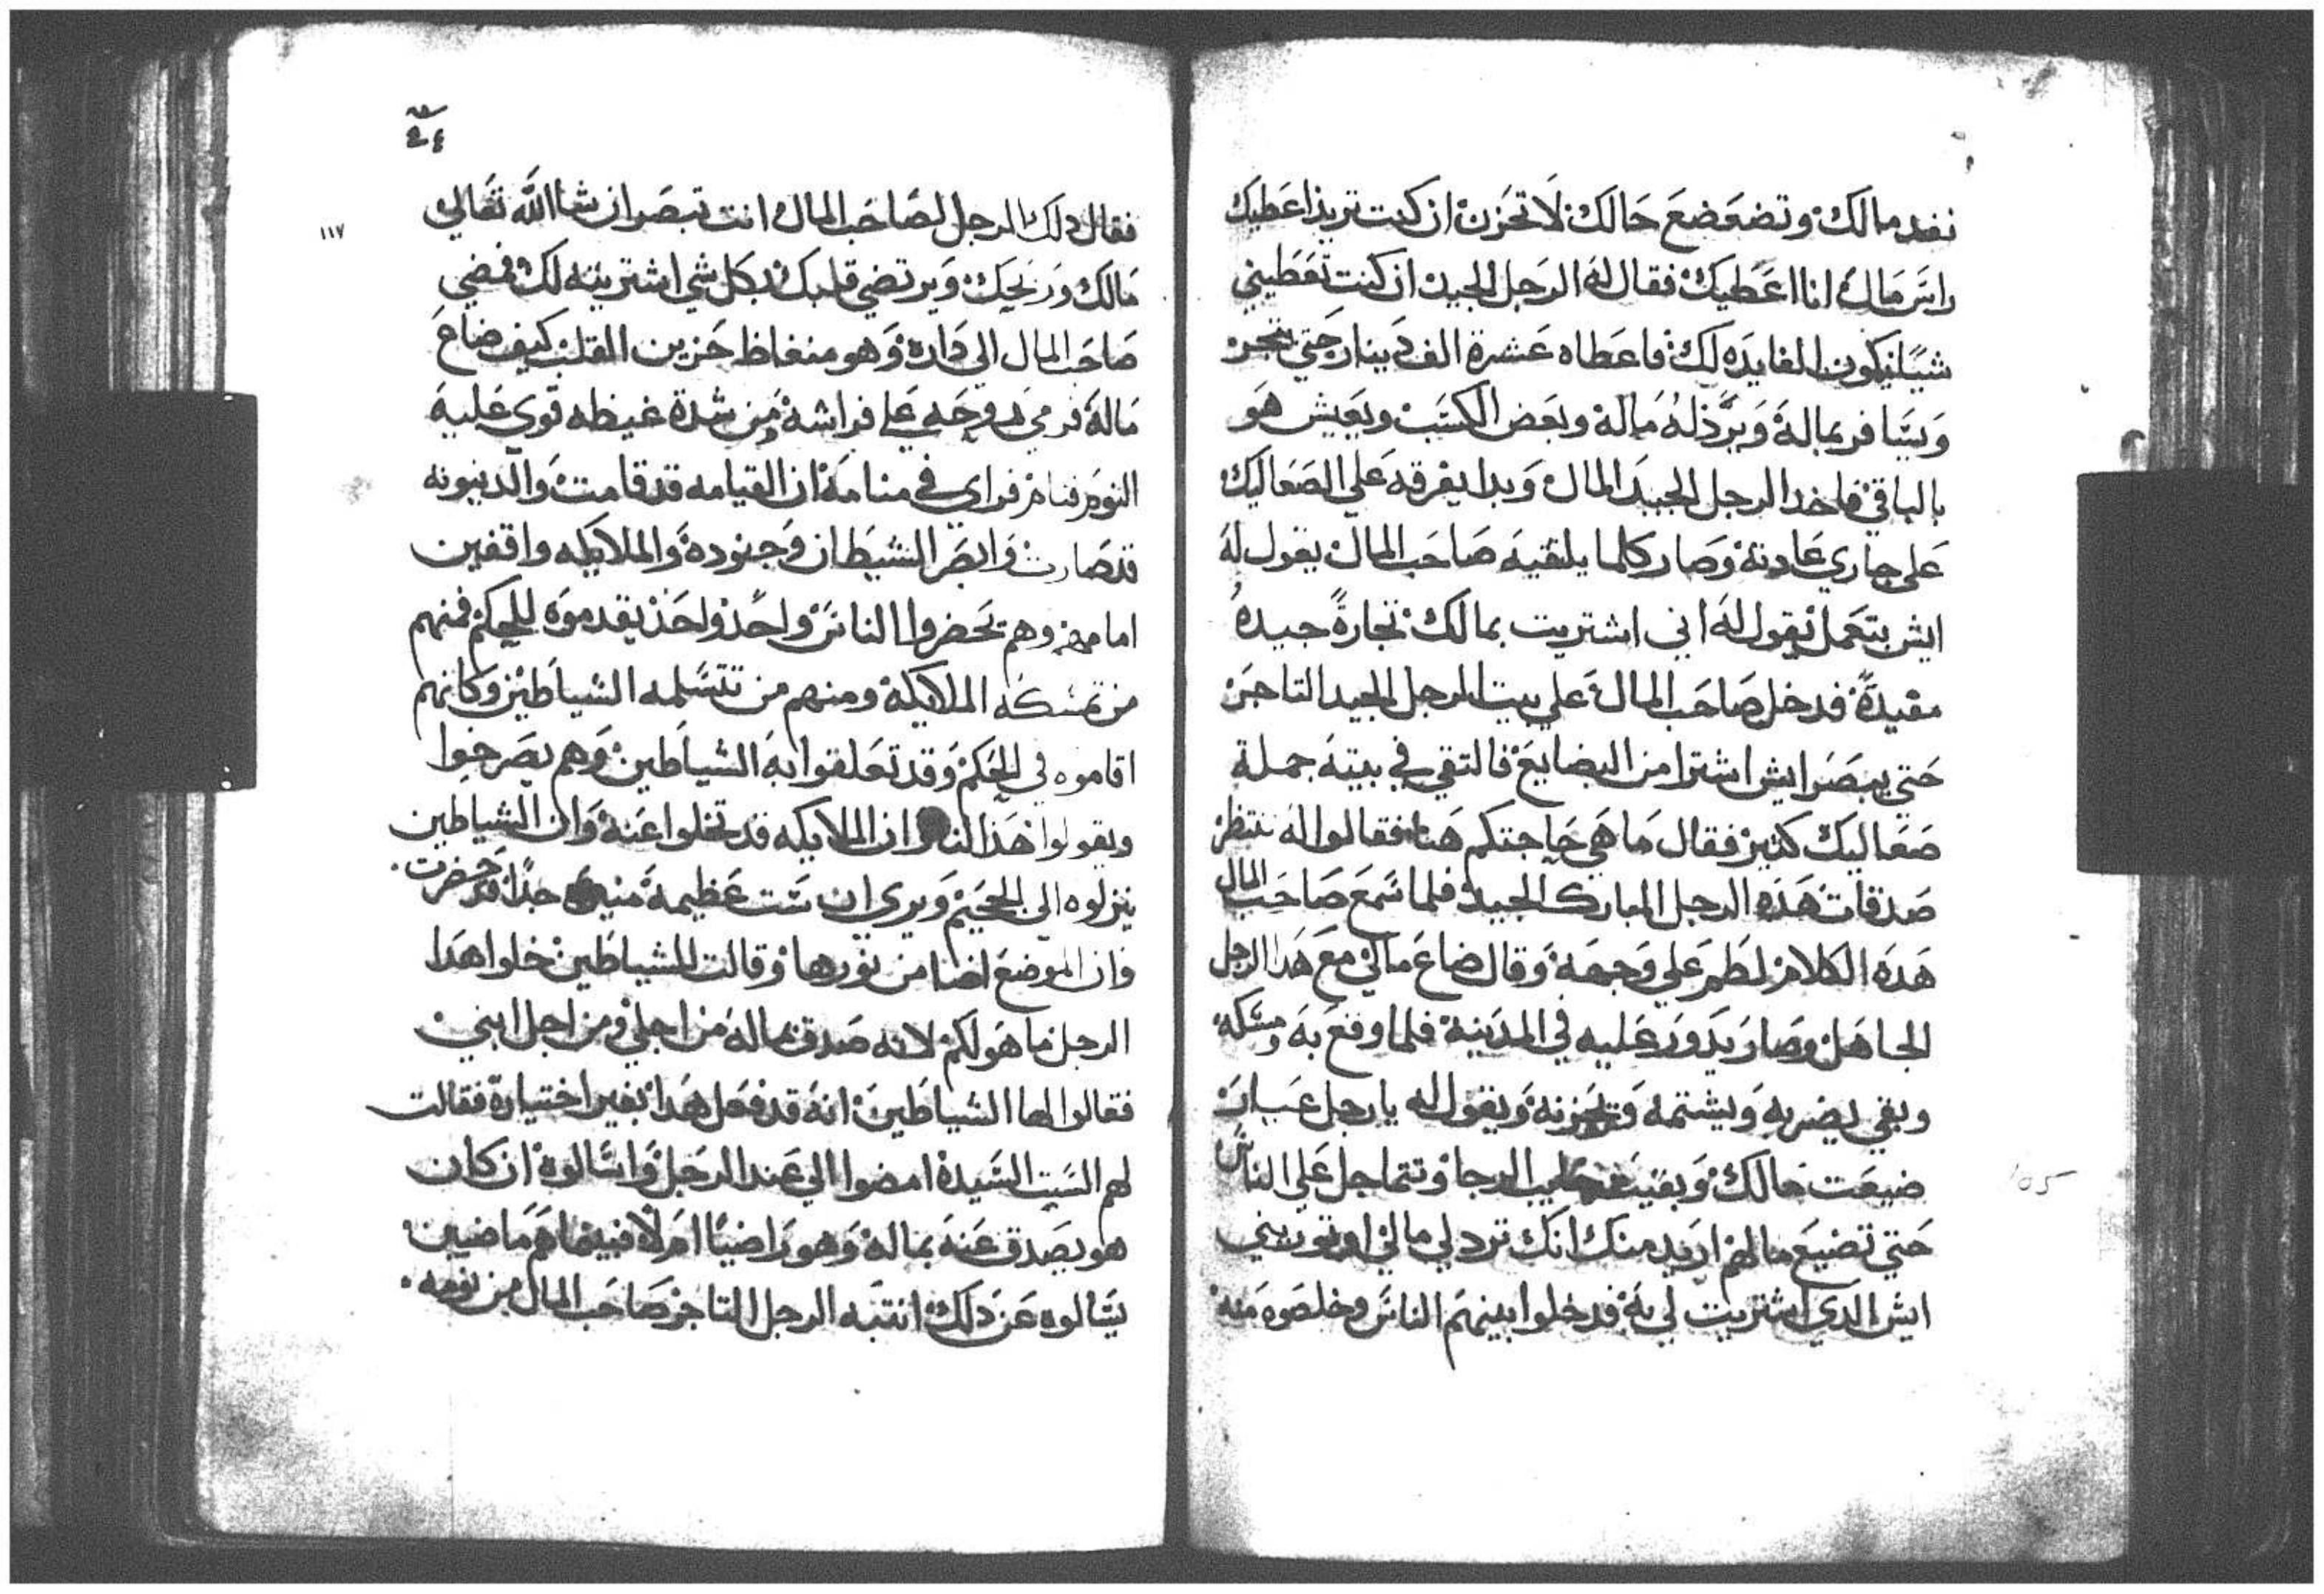 نفد مالك وتضعضع حالك لا تحزن ان كنت تريد اعطيك
راس مال انا اعطيك فقال له الرجل الجيد ان كنت تعطيني
شيًا يكون الفايده لك فاعطاه عشرة الف دينار حتي يتجر
ويسافر بماله ويرد له ماله وبعض الكسب ويعيش هو
بالباقي فاخد الرجل الجيد المال وبدا يفرقه علي الصعاليك
علي جاري عادته وصار كلما يلتقيه صاحب المال يقول له
ايش بتعمل يقول له اني اشتريت بمالك تجارةً جيده
مفيدةً فدخل صاحب المال علي بيت الرجل الجيد التاجر
حتي يبصر ايش اشترا من البضايع فالتقي في بيته جملة
صعاليك كتير فقال ما هي حاجتكم هنا فقالوا له ننتظر
صدقات هده الرجل المبارك الجيد فلما سمع صاحب المال
هده الكلام لطم علي وجهه وقال ضاع مالي مع هدا الرجل
الجاهل وصار يدور عليه في المدينة فلما وقع به ومسكه
وبقي يضربه ويشتمه ويقول له يا رجل
ضيعت مالك وبقيت الرجا وتتماجل علي الناس
حتي تضيع مالهم اريد منك انك ترد لي مالي او توريني
ايش الدي اشتريت لي به فدخلوا بينهم الناس وخلصوه منه
١١٧
فقال دلك الرجل لصاحب المال انت تبصر ان شا الله تعالي
مالك وربحك ويرتضي قلبك بكل شي اشتريته لك فمضي
صاحب المال الي داره وهو منغاظ حزين القلب كيف ضاع
ماله فرمي روحه علي فراشه من شدة غيظه قوي عليه
النوم فنام فراي في منامه ان القيامه قد قامت والدينونه
قد صارت وابصر الشيطان وجنوده والملايكه واقفين
امامهم وهم يحضروا الناس واحد واحد يقدموه للحكم فمنهم
من تمسكه الملايكة ومنهم من تتسلمه الشياطين وكانهم
اقاموه في الحكم وقد تعلقوا به الشياطين وهم يصرخوا
ويقولوا هدا لنا ان الملايكه قد تخلوا عنه وان الشياطين
ينزلوه الي الجحيم ويري ان ست عظيمة جدًا قد حضرت
وان الموضع اضا من نورها وقالت للشياطين خلوا هدا
الرجل ما هو لكم لانه صدق بماله من اجلي ومن اجل ابني
فقالوا لها الشياطين انه قد فعل هدا بغير اختياره فقالت
لهم الست السيدة امضوا الي عند الرجل واسالوه ان كان
هو يصدق عنه بماله وهو راضيًا ام لا فبينما هم ماضيين
يسالوه عن دلك انتبه الرجل التاجر صاحب المال من نومه